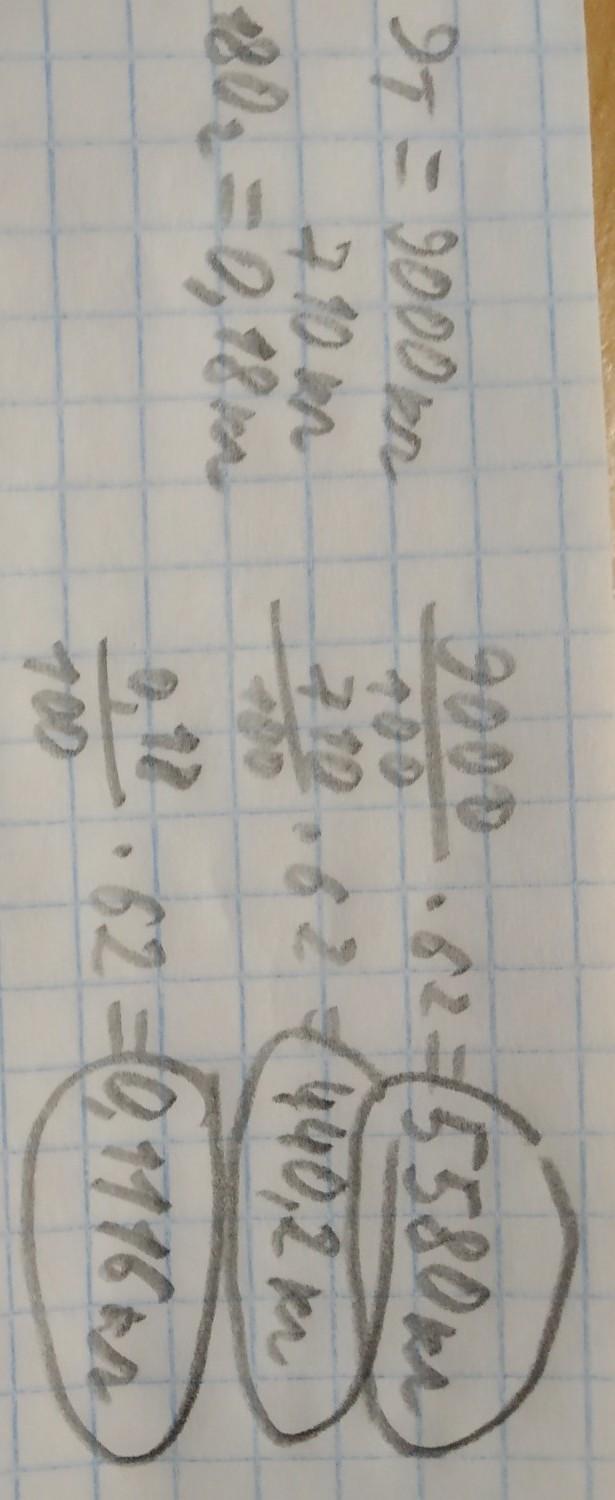 9т = 9000 кг
710 кг
180г = 0,18 кг
9000/100 · 62 = 5580 кг
710/100 · 62 = 440,2 кг
0,18/100 · 62 = 0,1116 кг